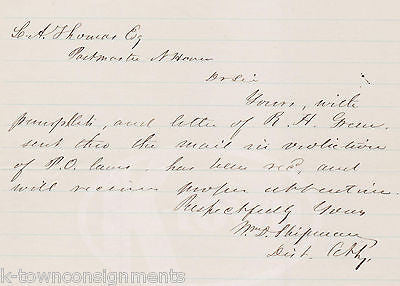 L. A. Thomas Esq
Postmaster N Haven
Dr Sir
Yours, with
pamphlet, and letter of R. H. Green
sent thro the mail in violation
of P.O. laws has been recd, and
will receive proper attention.
Respectfully Yours
Wm D. Shipman
Dist. Atty.
k-townconsignments